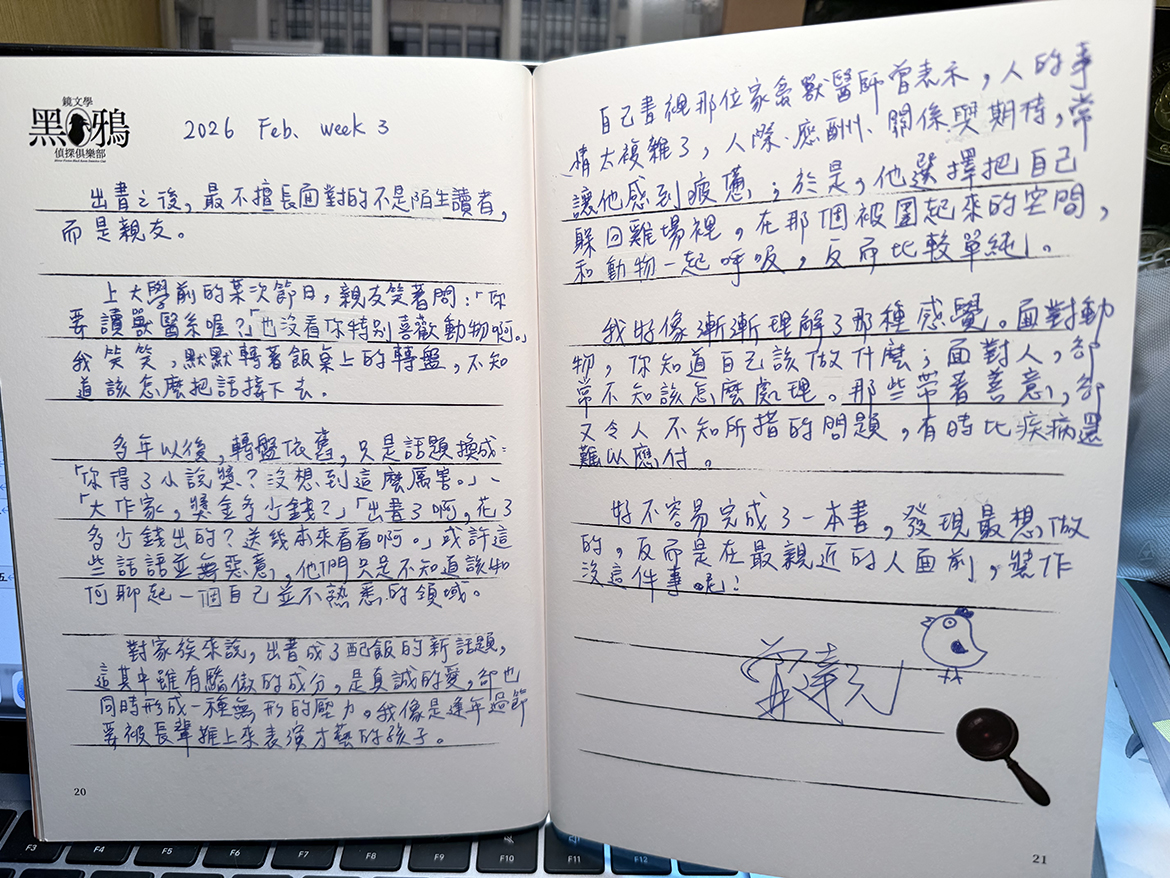 鏡文學
黑鴉
偵探俱樂部
2026 Feb. week 3
出書之後，最不擅長面對的不是陌生讀者，
而是親友。
上大學前的某次節日，親友笑著問：「你
要讀獸醫系喔？」「也沒看你特別喜歡動物啊。」
我笑笑，默默轉著飯桌上的轉盤，不知
道該怎麼把話接下去。
多年以後，轉盤依舊，只是話題換成：
「你得了小說獎？沒想到這麼厲害。」、
「大作家，獎金多少錢？」「出書了啊，花了
多少錢出的？送幾本來看看啊。」或許這
些話語並無惡意，他們只是不知道該如
何聊起一個自己並不熟悉的領域。
對家族來說，出書成了配飯的新話題，
這其中雖有驕傲的成分，是真誠的愛，卻也
同時形成一種無形的壓力。我像是逢年過節
要被長輩推上來表演才藝的孩子。
20
自己書裡那位家禽獸醫師曾表示，人的事
情太複雜了，人際、應酬、關係與期待，常
讓他感到疲憊；於是，他選擇把自己
躲回雞場裡。在那個被圍起來的空間，
和動物一起呼吸，反而比較單純」。
我好像漸漸理解了那種感覺。面對動
物，你知道自己該做什麼；面對人，卻
常不知該怎麼處理。那些帶著善意，卻
又令人不知所措的問題，有時比疾病還
難以應付。
好不容易完成了一本書，發現最想做
的，反而是在最親近的人面前，裝作
沒這件事呢！
21
F3
F4
F5
F6
F7
F8
F9
F10
F11
F12